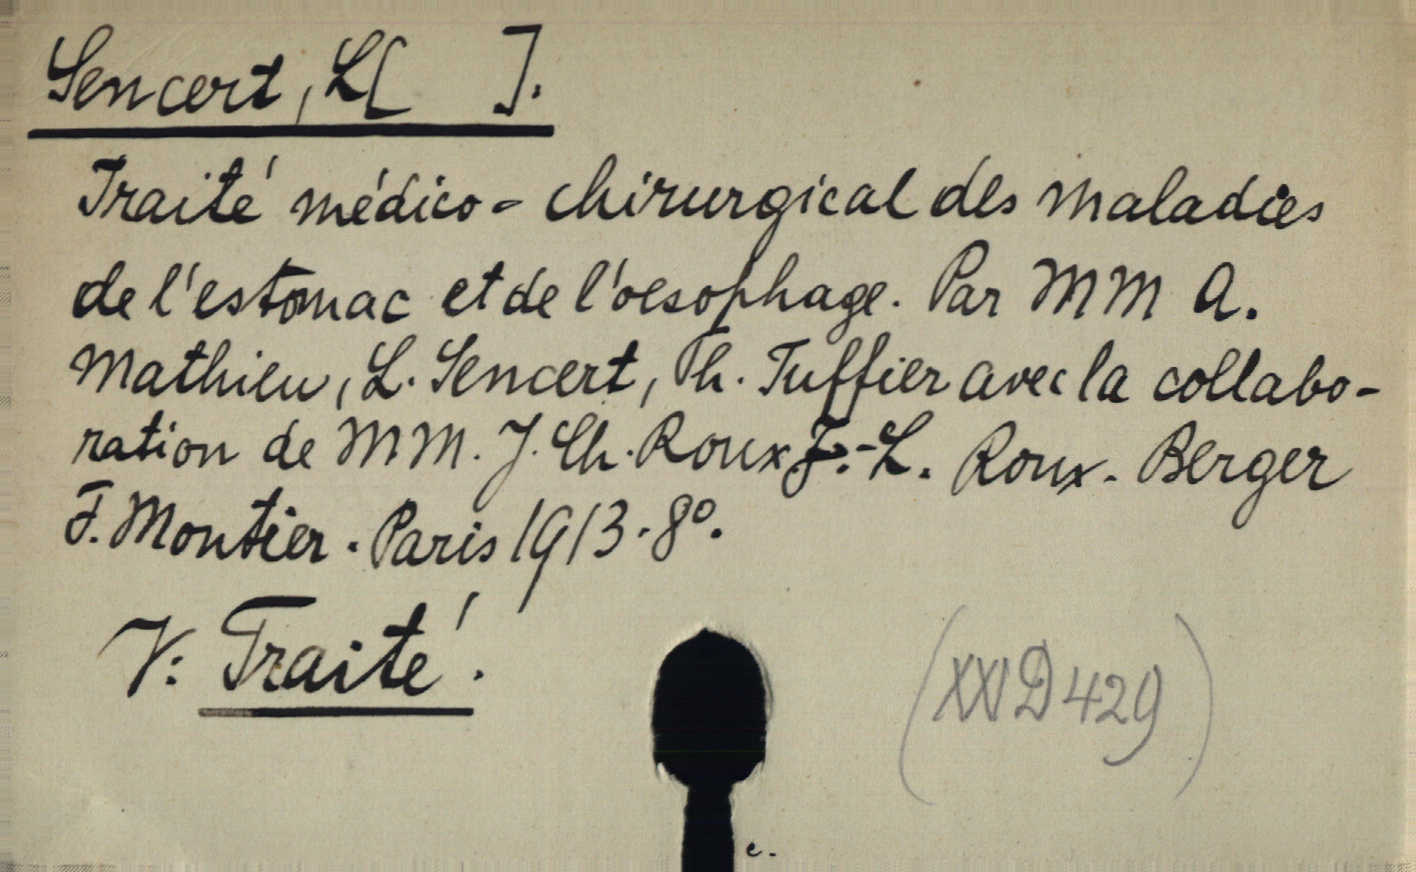 Sencert, L[ ].
Traité médico-chirurgical des maladies
de l'estomac et de l'oesophage. Par MM A.
Mathieu, L. Sencert, Th. Tuffier avec la collabo-
ration de MM. J. Ch. Roux J.-L. Roux-Berger
F. Moutier. Paris 1913. 8º.
V: Traité.
(XXVI D 429)
c.